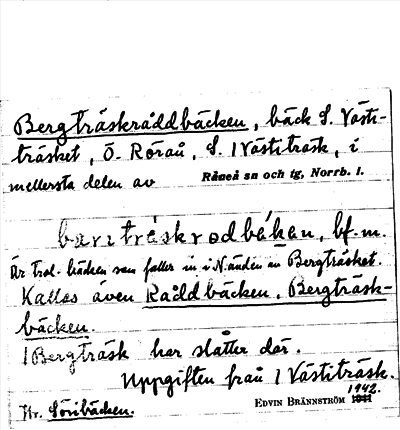 Bergträskråddbäcken, bäck S. Västi-
träsket, Ö. Röraå, S. 1 Västiträsk, i
mellersta delen av Råneå sn och tg, Norrb. l.
barrtráskrodbékan, bf. m.
Är trol. bäcken som faller in i N. änden av Bergträsket.
Kallas även Råddbäcken, Bergträsk-
bäcken.
1 Bergträsk har slåtter där.
Uppgiften från 1 Västiträsk.
Hr. Söribäcken. EDVIN BRÄNNSTRÖM 1942.